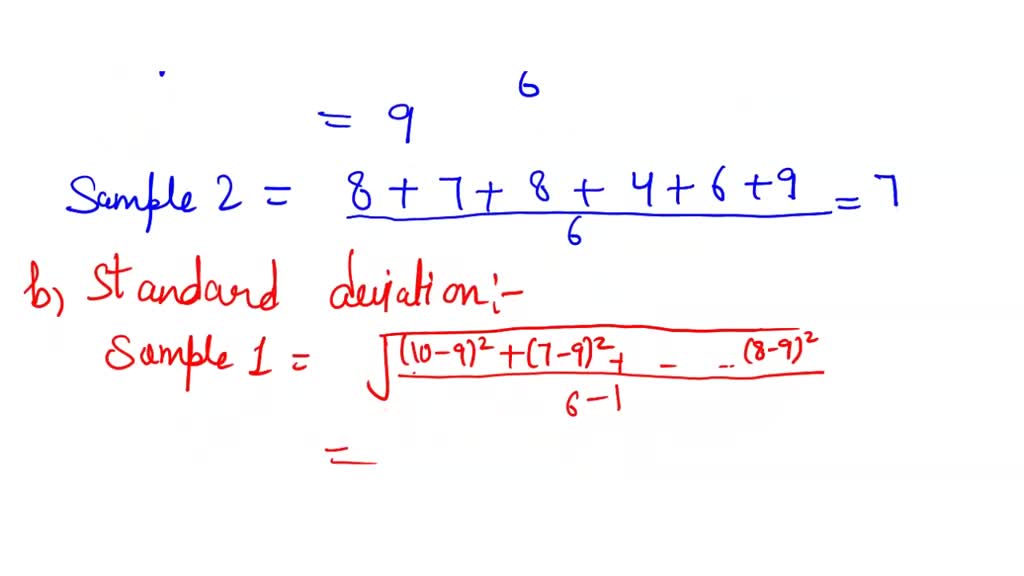 6
= 9
Sample 2 = 8 + 7 + 8 + 4 + 6 + 9 = 7
6
b) Standard deviation:-
Sample 1 = √ (10-9)² + (7-9)² + - -- (8-9)²
6-1
=